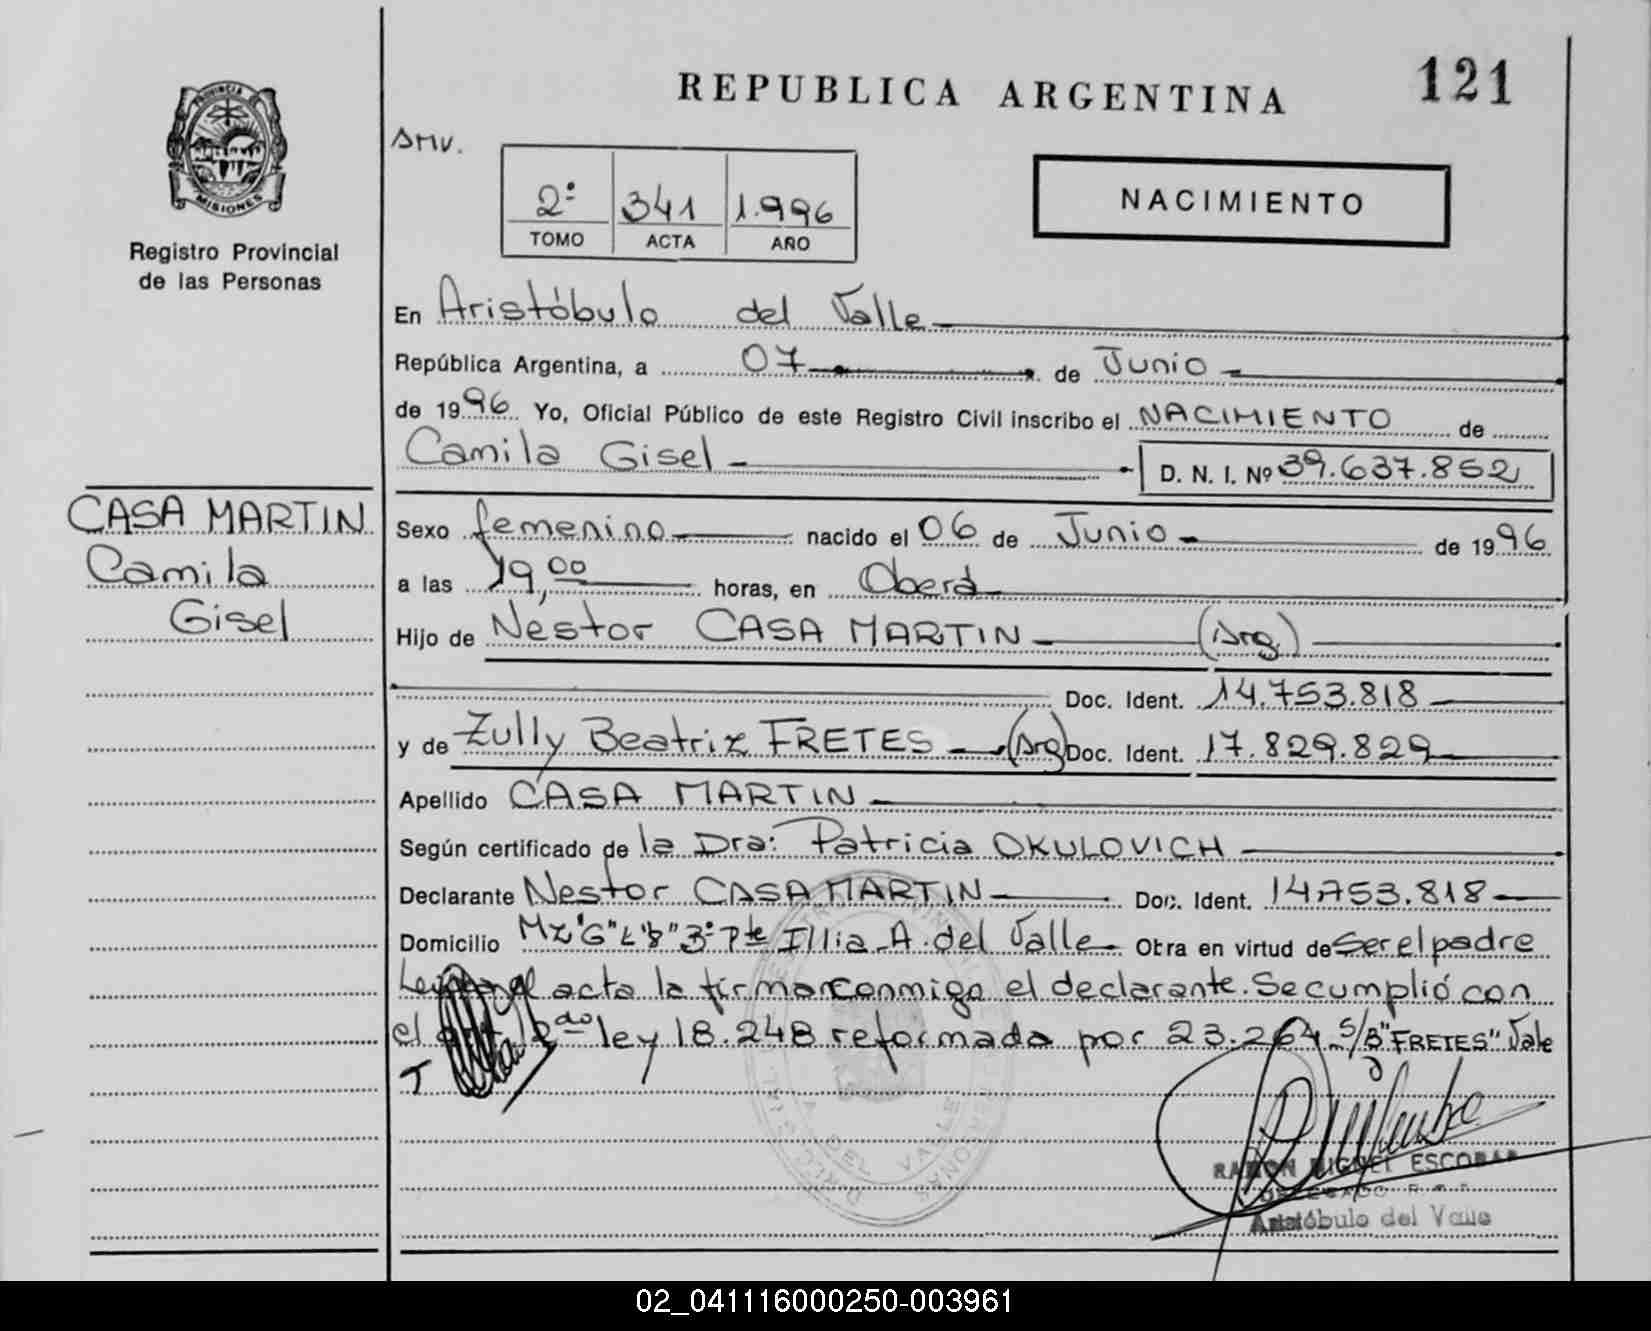 REPUBLICA ARGENTINA
121
PROVINCIA DE
MISIONES
Registro Provincial
de las Personas
2º 341 1.996
TOMO ACTA AÑO
NACIMIENTO
En Aristóbulo del Valle
República Argentina, a 07 de Junio
de 1996 Yo, Oficial Público de este Registro Civil inscribo el NACIMIENTO de
Camila Gisel D. N. I. Nº 39.637.852
CASA MARTIN
Camila
Gisel
Sexo femenino nacido el 06 de Junio de 1996
a las 19,00 horas, en Oberá
Hijo de Nestor CASA MARTIN (Arg.)
Doc. Ident. 14.753.818
y de Zully Beatriz FRETES (Arg) Doc. Ident. 17.829.829
Apellido CASA MARTIN
Según certificado de la Dra: Patricia OKULOVICH
Declarante Nestor CASA MARTIN Doc. Ident. 14.753.818
Domicilio Mz "G" L "8" 3º Pte Illia A. del Valle Obra en virtud de ser el padre
acta la firma conmigo el declarante. Se cumplió con
el ley 18.248 reformada por 23.264 S/B "FRETES" Vale
RAMON MIGUEL ESCOBAR
DELEGADO
Aristóbulo del Valle
02_041116000250-003961